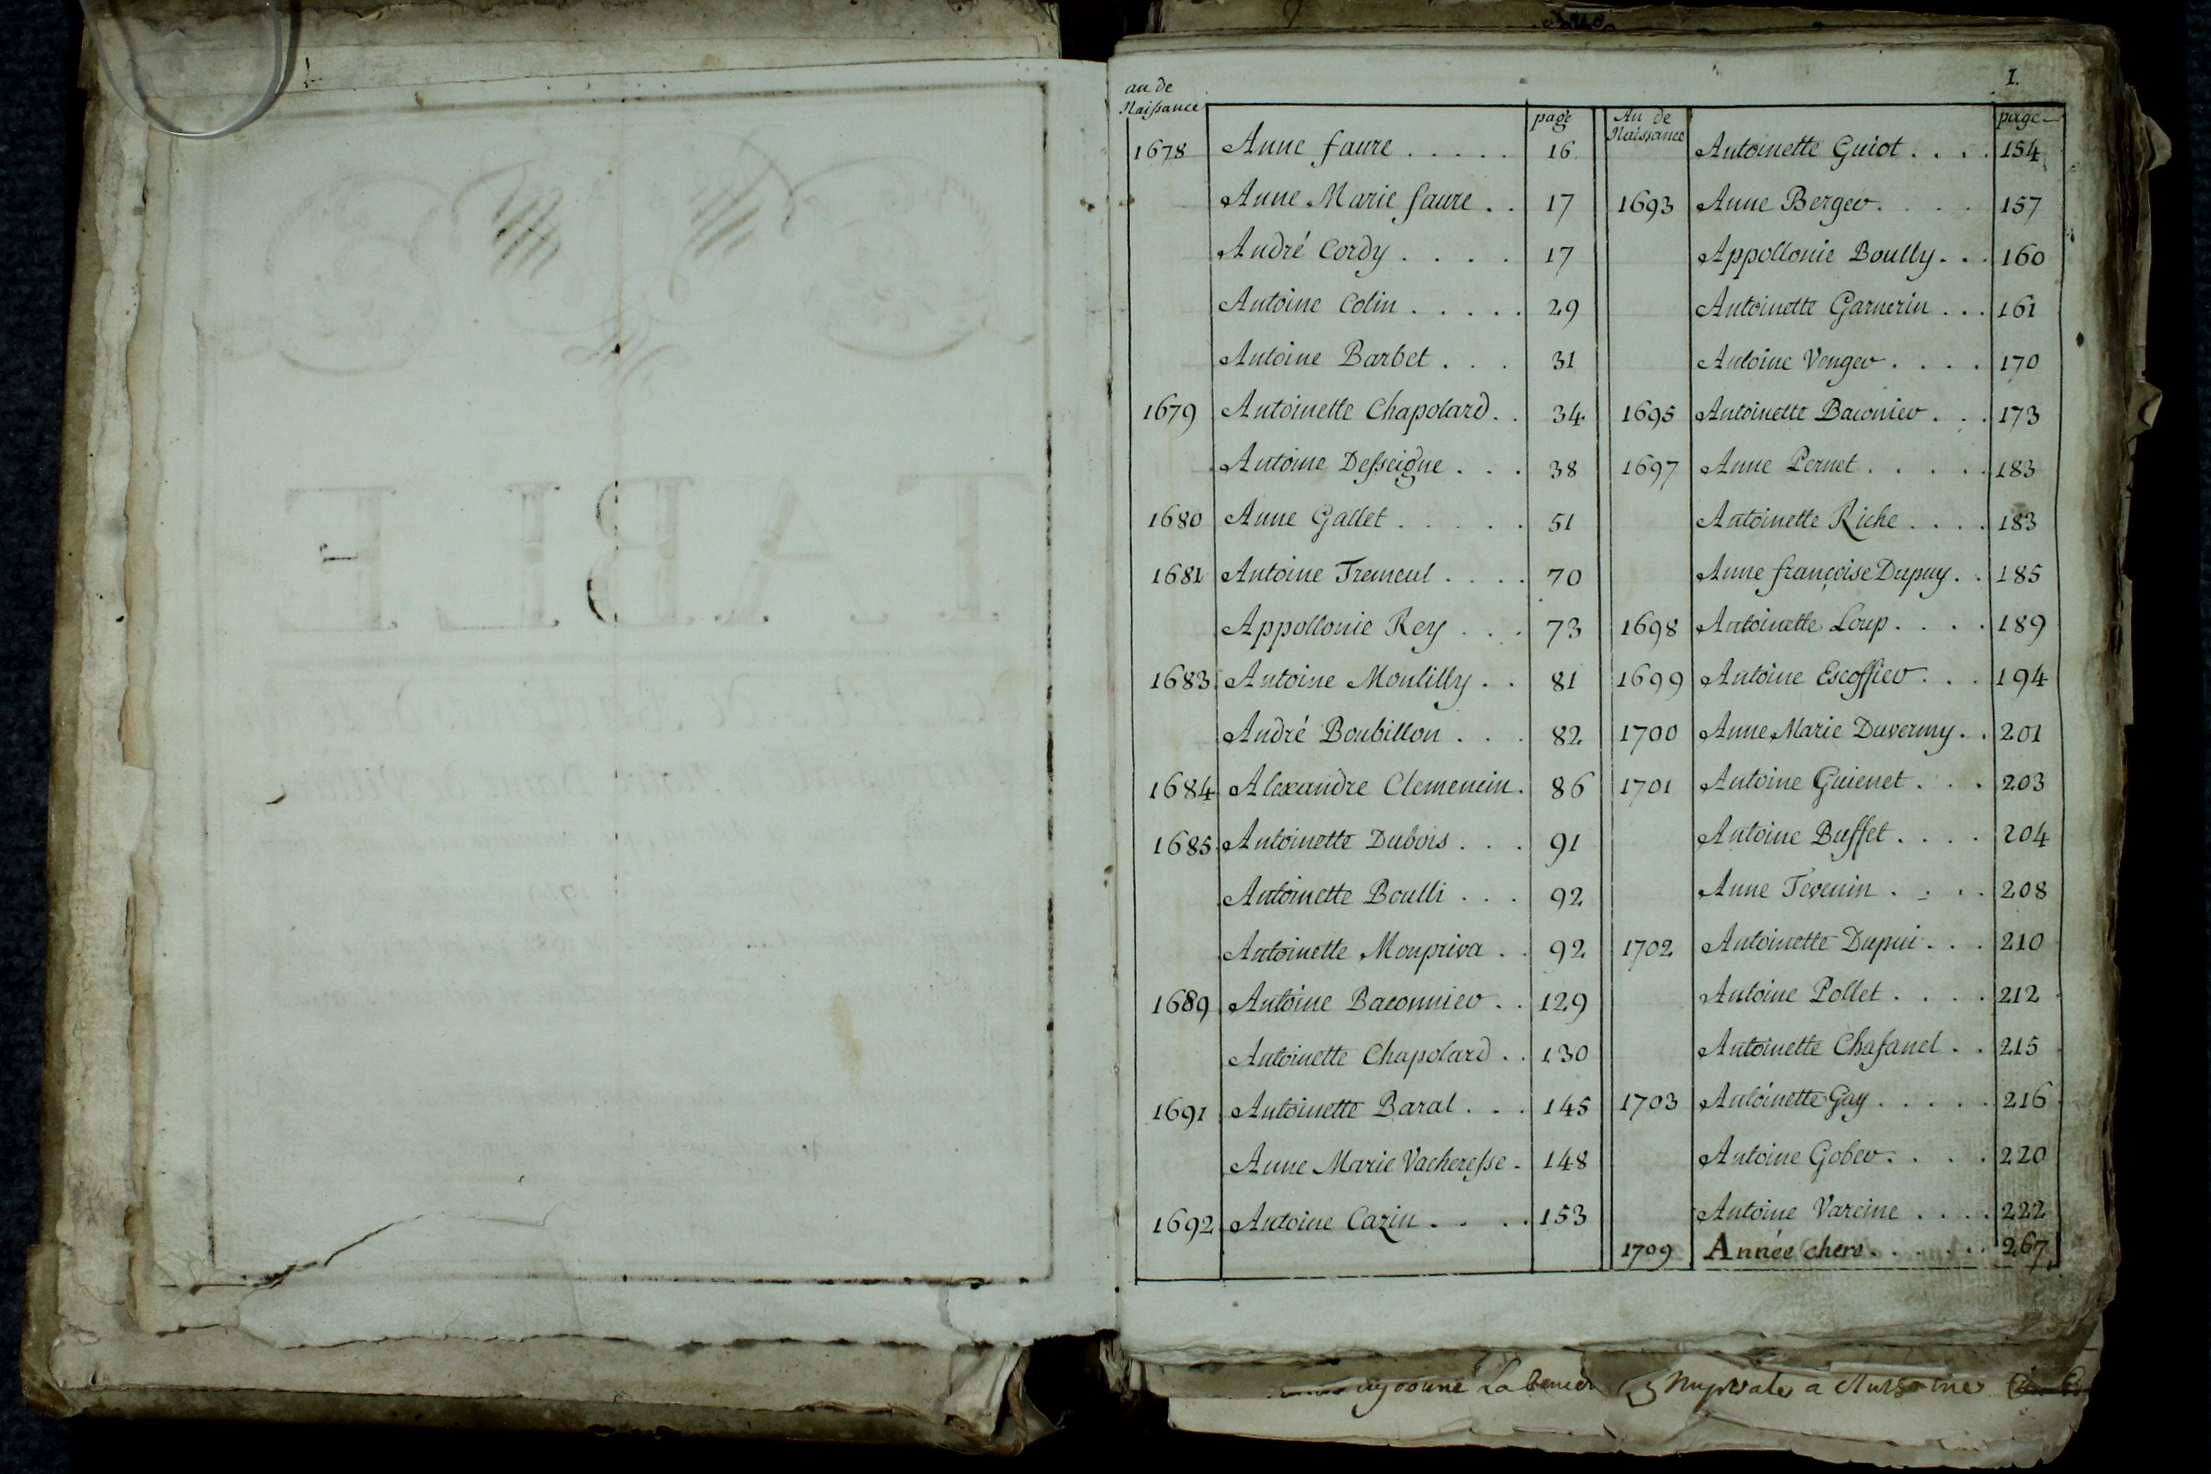 I.
an de
Naissance
page
1678 Anne faure ..... 16
Anne Marie faure .. 17
André Cordy .... 17
Antoine Colin ..... 29
Antoine Barbet ... 31
1679 Antoinette Chapolard .. 34
Antoine Desseigne ... 38
1680 Anne Gallet ..... 51
1681 Antoine Tremeul .... 70
Appollonie Rey ... 73
1683 Antoine Montilly .. 81
André Boubillon ... 82
1684 Alexandre Clemencin . 86
1685 Antoinette Dubois ... 91
Antoinette Boulli ... 92
Antoinette Monpriva .. 92
1689 Antoine Baconnier .. 129
Antoinette Chapolard .. 130
1691 Antoinette Baral ... 145
Anne Marie Vacheresse . 148
1692 Antoine Cazin .... 153
An de
Naissance
page
Antoinette Guiot .... 154
1693 Anne Berger .... 157
Appollonie Boully ... 160
Antoinette Garnerin ... 161
Antoine Venger .... 170
1695 Antoinette Baconier ... 173
1697 Anne Pernet ..... 183
Antoinette Riche .... 183
Anne françoise Dupuy .. 185
1698 Antoinette Loup .... 189
1699 Antoine Escoffier ... 194
1700 Anne Marie Duverny .. 201
1701 Antoine Guienet ... 203
Antoine Buffet .... 204
Anne Tevenin .... 208
1702 Antoinette Dupui ... 210
Antoine Pollet .... 212
Antoinette Chafanel .. 215
1703 Antoinette Gay ..... 216
Antoine Gober .... 220
Antoine Vareine .... 222
1709 Année chere ...... 267
TABLE